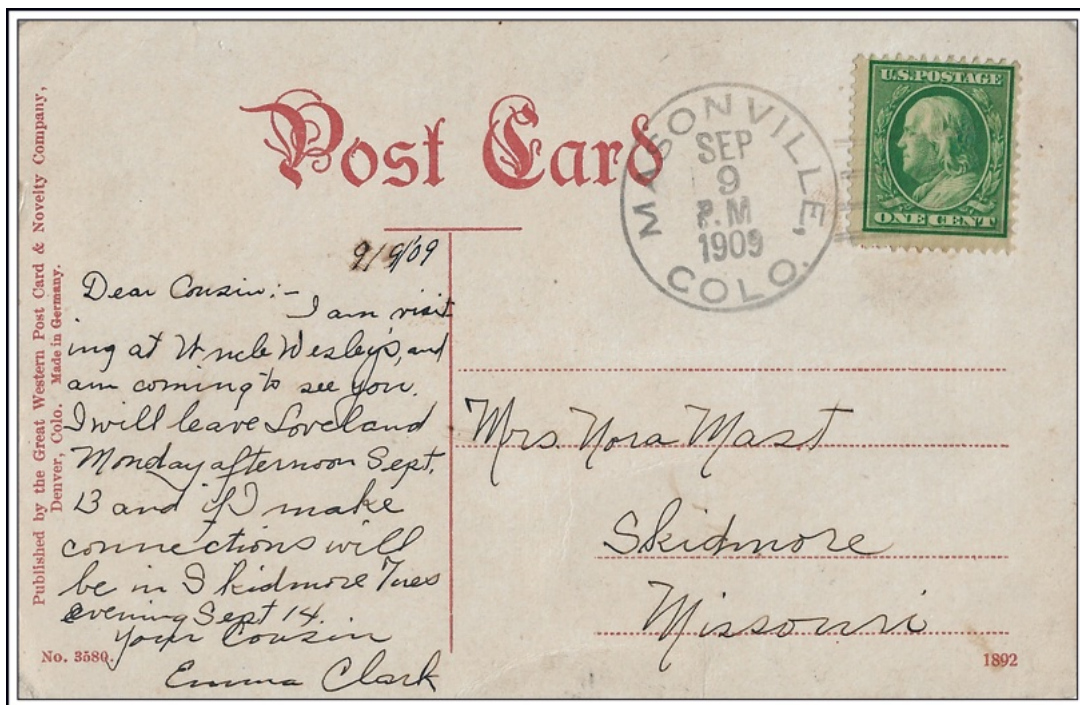 Published by the Great Western Post Card & Novelty Company,
Denver, Colo. Made in Germany.
Post Card
MASONVILLE,
COLO.
SEP
9
P.M
1909
U.S. POSTAGE
ONE CENT
9/9/09
Dear Cousin:-
I am visit
ing at Uncle Wesley's, and
am coming to see you.
I will leave Loveland
Monday afternoon Sept.
13 and if I make
connections will
be in Skidmore Tues
evening Sept 14.
Your Cousin
Emma Clark
Mrs. Nora Mast
Skidmore
Missouri
No. 3580.
1892